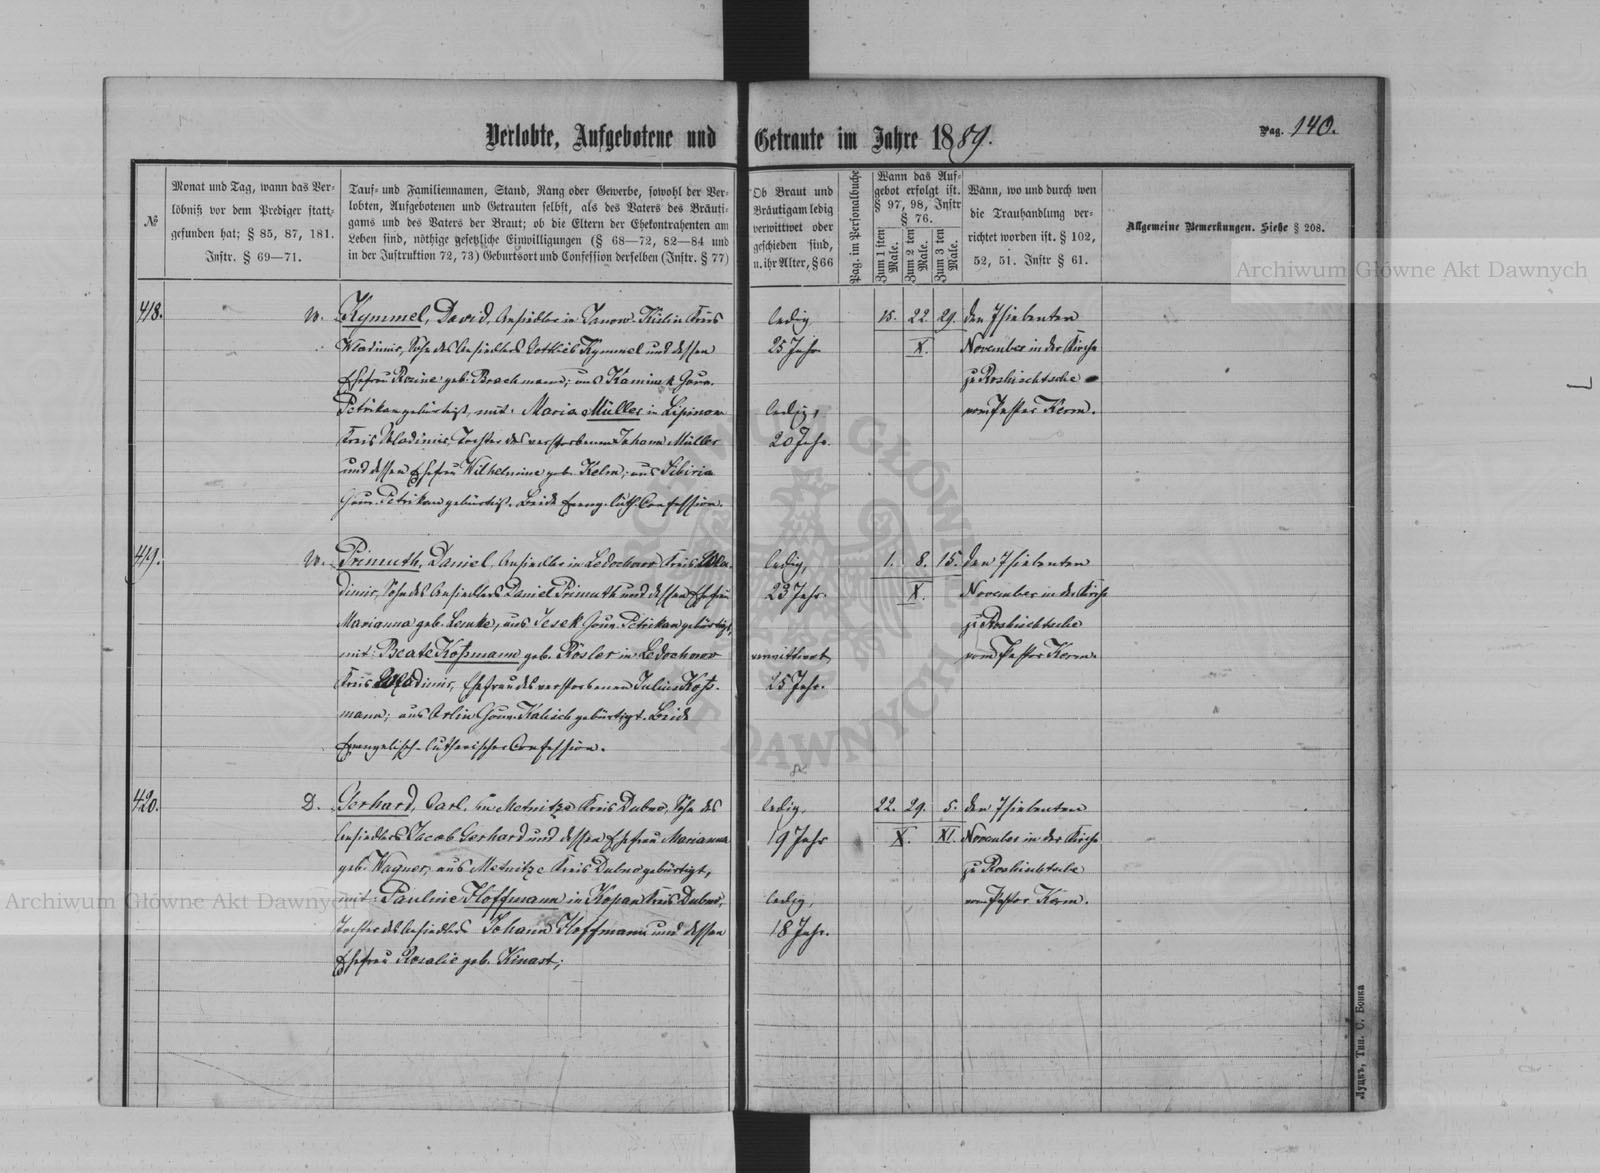 Verlobte, Aufgebotene und Getraute im Jahre 1889.
Pag. 140.
№
Monat und Tag, wann das Ver-
löbniß vor dem Prediger statt-
gefunden hat; § 85, 87, 181.
Instr. § 69—71.
Tauf- und Familiennamen, Stand, Rang oder Gewerbe, sowohl der Ver-
lobten, Aufgebotenen und Getrauten selbst, als des Vaters des Bräuti-
gams und des Vaters der Braut; ob die Eltern der Ehekontrahenten am
Leben sind, nöthige gesetzliche Einwilligungen (§ 68—72, 82—84 und
in der Instruktion 72, 73) Geburtsort und Confession derselben (Instr. § 77)
Ob Braut und
Bräutigam ledig
verwittwet oder
geschieden sind,
u. ihr Alter, § 66
Pag. im Personalbuche
Wann das Auf-
gebot erfolgt ist.
§ 97, 98, Instr
§ 76.
Zum 1 sten Male.
Zum 2 ten Male.
Zum 3 ten Male.
Wann, wo und durch wen
die Trauhandlung ver-
richtet worden ist. § 102,
52, 51. Instr § 61.
Allgemeine Bemerkungen. Siehe § 208.
418.
W. Kymmel, David, Ansiedler in Janow Kisilin Kreis
Wladimir, Sohn des Ansiedlers Gottlieb Kymmel und dessen
Ehefrau Rosine geb. Brachmann; aus Kaminsk Gouv.
Petrikau gebürtigt, mit: Maria Müller in Lipinow
Kreis Wladimir, Tochter des verstorbenen Johann Müller
und dessen Ehefrau Wilhelmine geb. Kelm; aus Sibiria
Gouv. Petrikau gebürtigt. Beide Evang. Luth. Confession.
ledig
25 Jahr
ledig,
20 Jahr.
15. 22. 29.
X.
den 7 siebenten
November in der Kirche
zu Roshischtsche
vom Pastor Kerm.
419.
W. Primuth, Daniel, Ansiedler in Ledochow Kreis Wla-
dimir, Sohn des Ansiedlers Daniel Primuth und dessen Ehefrau
Marianna geb. Lemke, aus Jesek Gouv. Petrikau gebürtigt,
mit: Beate Koßmann geb. Rösler in Ledochow
Kreis Wladimir, Ehefrau des verstorbenen Julius Koß-
mann; aus Orlin Gouv. Kalisch gebürtigt. Beide
Evangelisch-Lutherischer Confession.
ledig,
23 Jahr.
verwittwet
25 Jahr.
1. 8. 15.
X.
den 7 siebenten
November in der Kirche
zu Roshischtsche
vom Pastor Kerm.
420.
D. Gerhard, Carl, in Metnitze Kreis Dubno, Sohn des
Ansiedlers Jacob Gerhard und dessen Ehefrau Marianna
geb. Wagner, aus Metnitze Kreis Dubno gebürtigt,
mit: Pauline Hoffmann in Kopan Kreis Dubno,
Tochter des Ansiedlers Johann Hoffmann und dessen
Ehefrau Rosalie geb. Kinast;
ledig,
19 Jahr
ledig,
18 Jahr.
22. 29. 5.
X. XI.
den 7 siebenten
November in der Kirche
zu Roshischtsche
vom Pastor Kerm.
Луцкъ, Тип. С. Бонка
Archiwum Główne Akt Dawnych
Archiwum Główne Akt Dawnych
ARCHIWUM GŁÓWNE AKT DAWNYCH